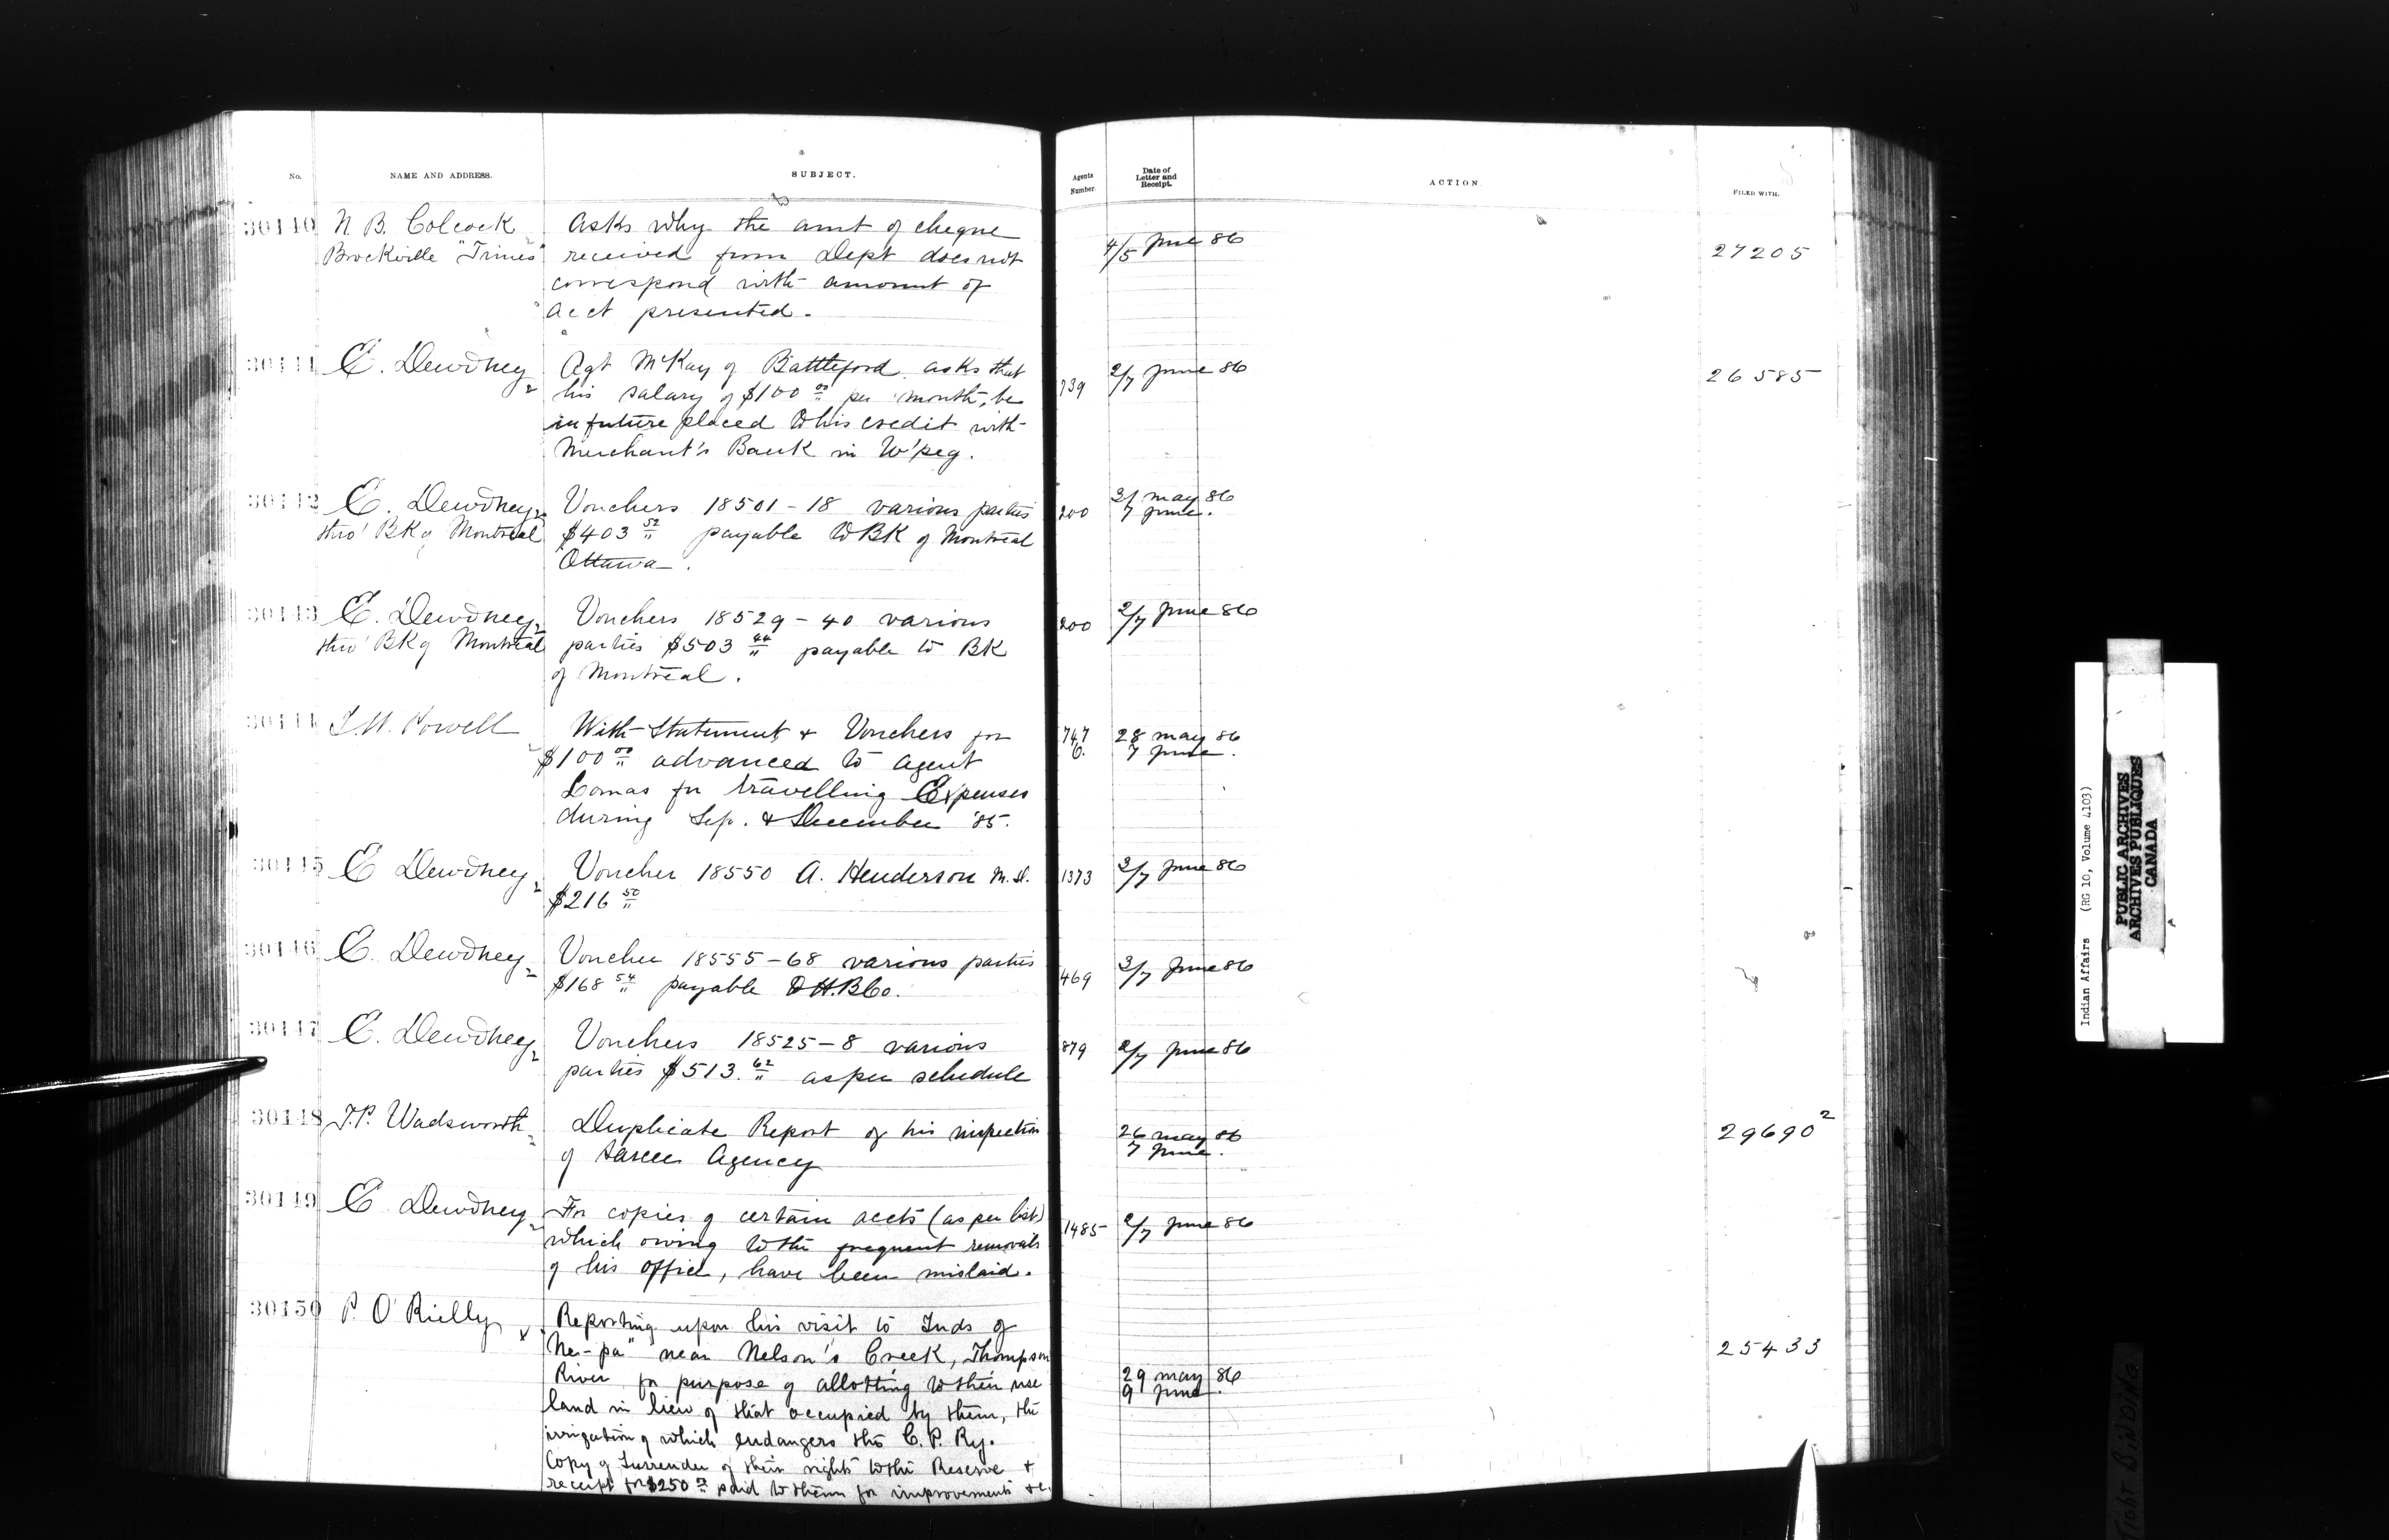 No.
NAME AND ADDRESS.
SUBJECT.
Agents Number.
Date of Letter and Receipt.
ACTION.
FILED WITH.
30140 N. B. Colcock Asks why the amt of cheque
Brockville "Times" received from Dept does not 4/5 June 86 27205
correspond with amount of
acct presented.
30141 E. Dewdney Agt McKay of Battleford asks that 2/7 June 86 26585
his salary of $100 00 per month, be 739
in future placed to his credit with
Merchant's Bank in W'peg.
30142 E. Dewdney Vouchers 18501-18 various parties 200 31 May 86
thro' BK of Montreal $403 52 payable to BK of Montreal 7 June.
Ottawa.
30143 E. Dewdney Vouchers 18529-40 various 200 2/7 June 86
thro' BK of Montreal parties $503 44 payable to BK
of Montreal.
30144 I. W. Powell With Statement & Vouchers for 747 28 May 86
$100 00 advanced to agent 6. 7 June.
Lomas for travelling Expenses
during Sep. & December '85.
30145 E Dewdney Voucher 18550 A. Henderson M.D. 1373 3/7 June 86
$216 50
30146 E. Dewdney Voucher 18555-68 various parties 469 3/7 June 86
$168 54 payable to H.B Co.
30147 E. Dewdney Vouchers 18525-8 various 879 2/7 June 86
parties $513. 62 as per schedule
30148 T.P. Wadsworth Duplicate Report of his inspection 26 May 86 29690 2
of Sarcee Agency 7 June.
30149 E. Dewdney For copies of certain accts (as per list) 1485 2/7 June 86
which owing to the frequent removals
of his office, have been mislaid.
30150 P. O'Rielly Reporting upon his visit to Inds of
Ne-pa" near Nelson's Creek, Thompson 25433
River for purpose of allotting to their use 29 May 86
land in lieu of that occupied by them, the 9 June.
irrigation of which endangers the C. P. Ry.
Copy of Surrender of their rights to the Reserve &
receipt for $250 00 paid to them for improvements &c.
Indian Affairs (RG 10, Volume 4103)
PUBLIC ARCHIVES
ARCHIVES PUBLIQUES
CANADA
TIGHT BINDING